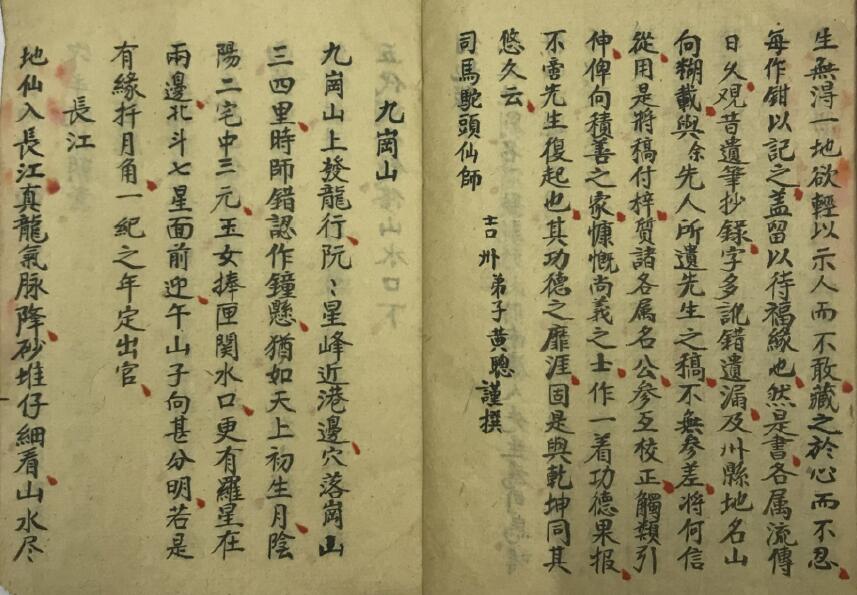 生無得一地欲輕以示人而不敢藏之於心而不忍
每作鉗以記之蓋留以待福緣也然是書各属流傳
日久观昔遺筆抄錄字多訛錯遺漏及州縣地名山
向糊載與余先人所遺先生之稿不無參差將何信
從用是将稿付梓質諸各属名公參互校正觸類引
伸俾向積善之家慷慨尚義之士作一着功德果报
不啻先生復起也其功德之靡涯固是與乾坤同其
悠久云
司馬駝頭仙師
吉州弟子黃聰謹撰
九崗山
九崗山上發龍行阮〻星峰近港邊穴落崗山
三四里時師錯認作鐘懸猶如天上初生月陰
陽二宅中三元玉女捧匣関水口更有羅星在
兩邊北斗七星面前迎午山子向甚分明若是
有緣扦月角一紀之年定出官
長江
地仙入長江真龍氣脉降砂堆仔細看山水尽